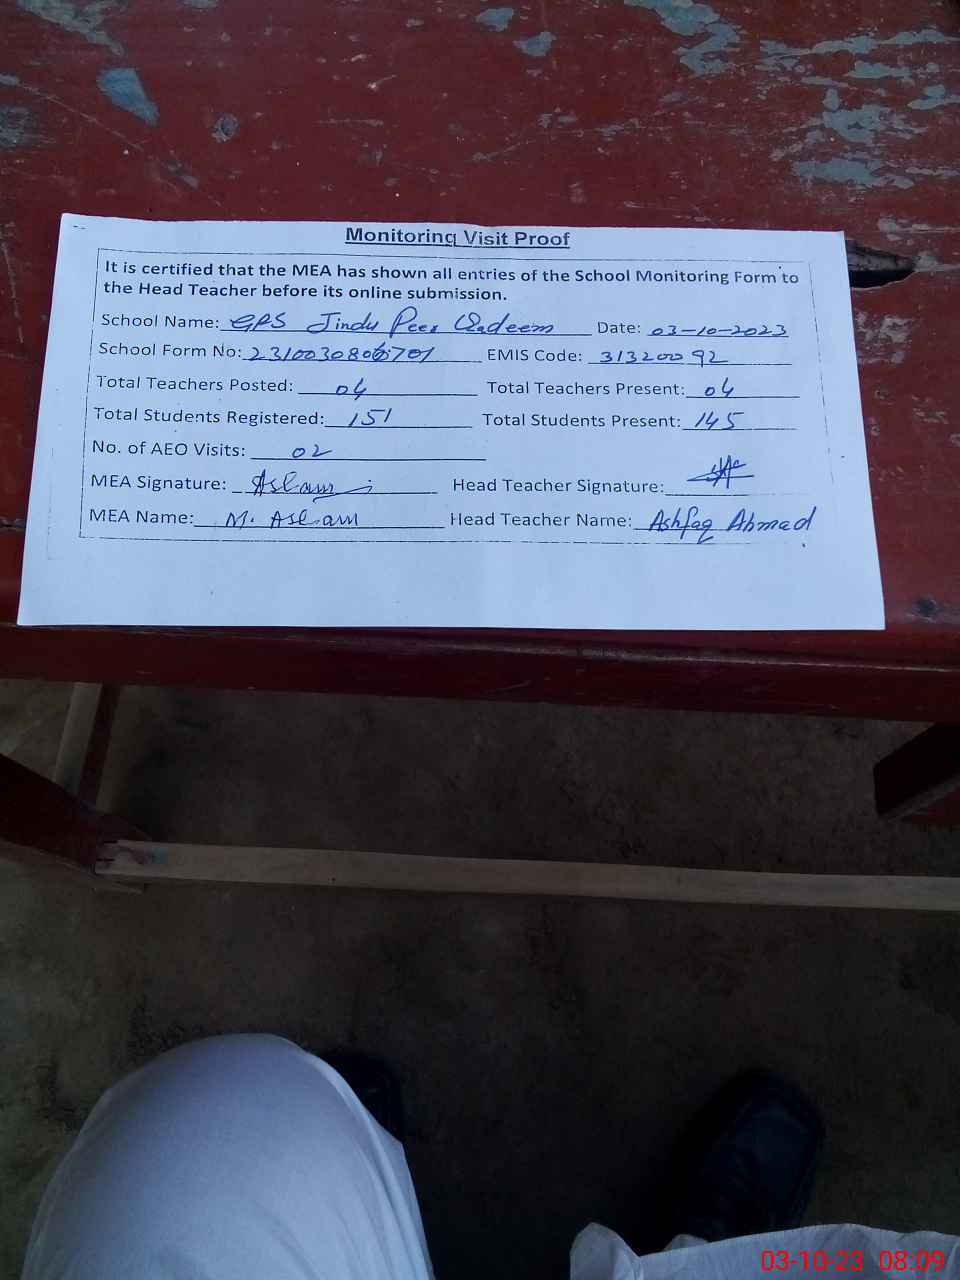 Monitoring Visit Proof
It is certified that the MEA has shown all entries of the School Monitoring Form to
the Head Teacher before its online submission.
School Name: GPS Jindu Peer Qadeem Date: 03-10-2023
School Form No: EMIS Code: 31320092
Total Teachers Posted: 04 Total Teachers Present: 04
Total Students Registered: 151 Total Students Present: 145
No. of AEO Visits: 02
MEA Signature: Aslam Head Teacher Signature:
MEA Name: M. Aslam Head Teacher Name: Ashfaq Ahmad
03-10-23 08:09